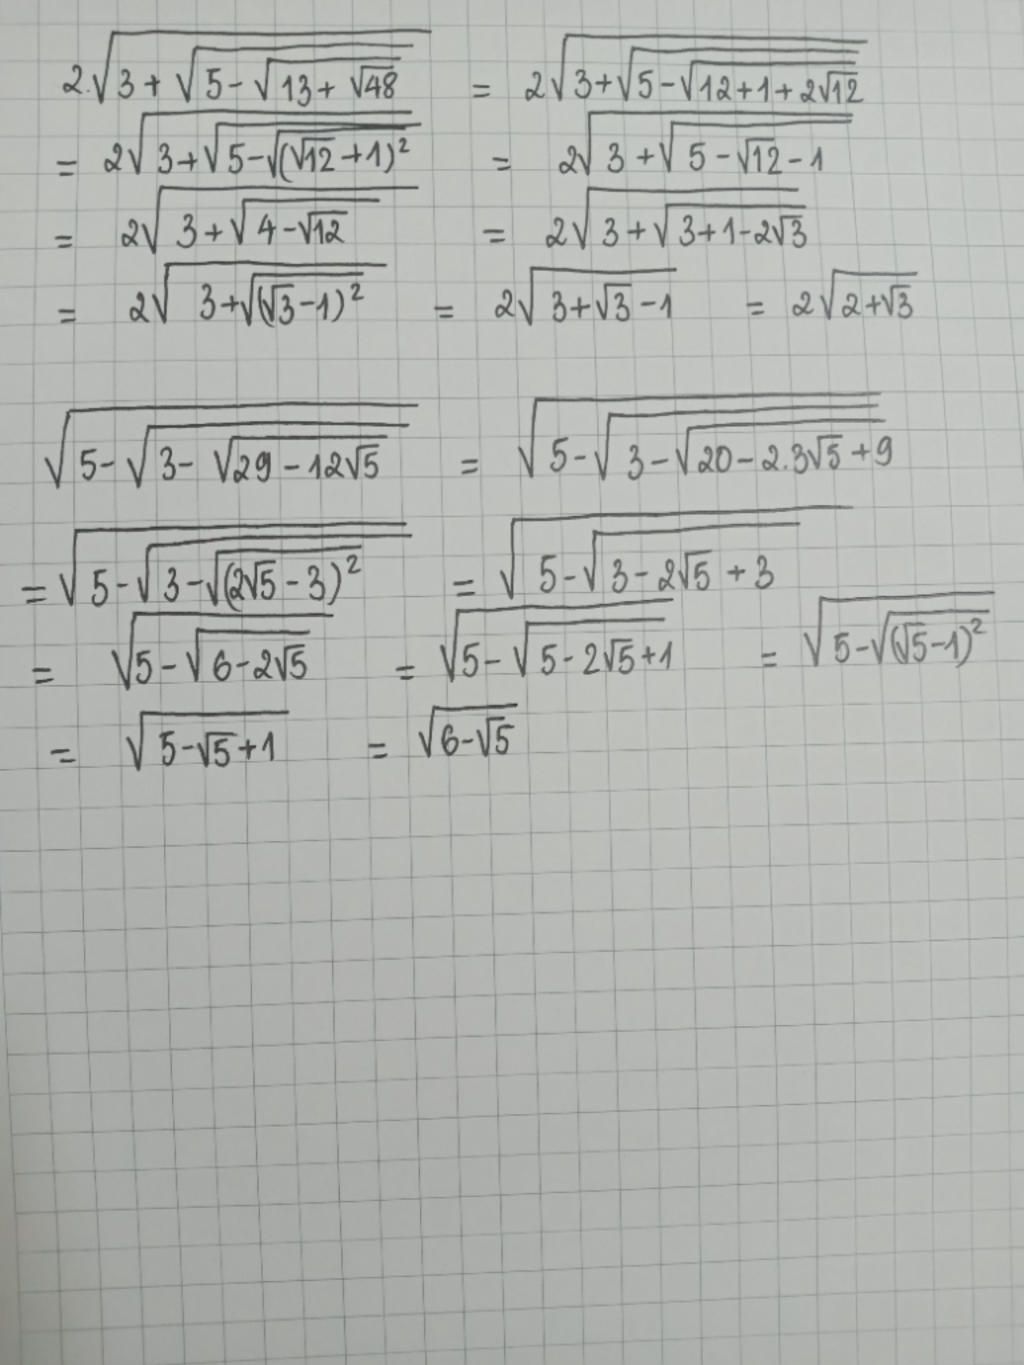 2.√(3+√(5-√(13+√48))) = 2√(3+√(5-√(12+1+2√12)))
= 2√(3+√(5-√((√12+1)²))) = 2√(3+√(5-√12-1))
= 2√(3+√(4-√12)) = 2√(3+√(3+1-2√3))
= 2√(3+√((√3-1)²)) = 2√(3+√3-1) = 2√(2+√3)
√(5-√(3-√(29-12√5))) = √(5-√(3-√(20-2.3√5+9)))
= √(5-√(3-√((2√5-3)²))) = √(5-√(3-2√5+3))
= √(5-√(6-2√5)) = √(5-√(5-2√5+1)) = √(5-√((√5-1)²))
= √(5-√5+1) = √(6-√5)